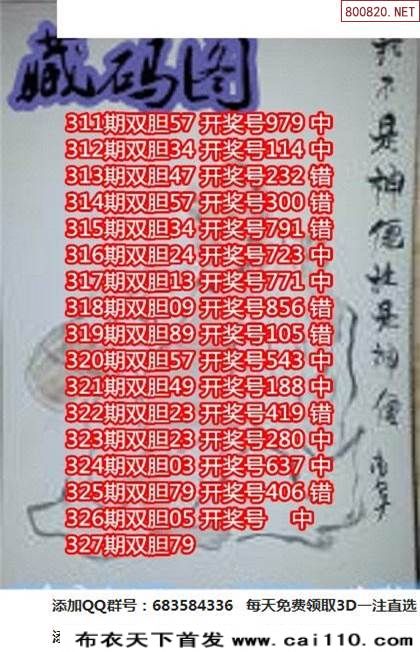 800820.NET
藏码图
311期双胆57 开奖号979 中
312期双胆34 开奖号114 中
313期双胆47 开奖号232 错
314期双胆57 开奖号300 错
315期双胆34 开奖号791 错
316期双胆24 开奖号723 中
317期双胆13 开奖号771 中
318期双胆09 开奖号856 错
319期双胆89 开奖号105 错
320期双胆57 开奖号543 中
321期双胆49 开奖号188 中
322期双胆23 开奖号419 错
323期双胆23 开奖号280 中
324期双胆03 开奖号637 中
325期双胆79 开奖号406 错
326期双胆05 开奖号 中
327期双胆79
添加QQ群号：683584336 每天免费领取3D一注直选
布衣天下首发 www.cai110.com